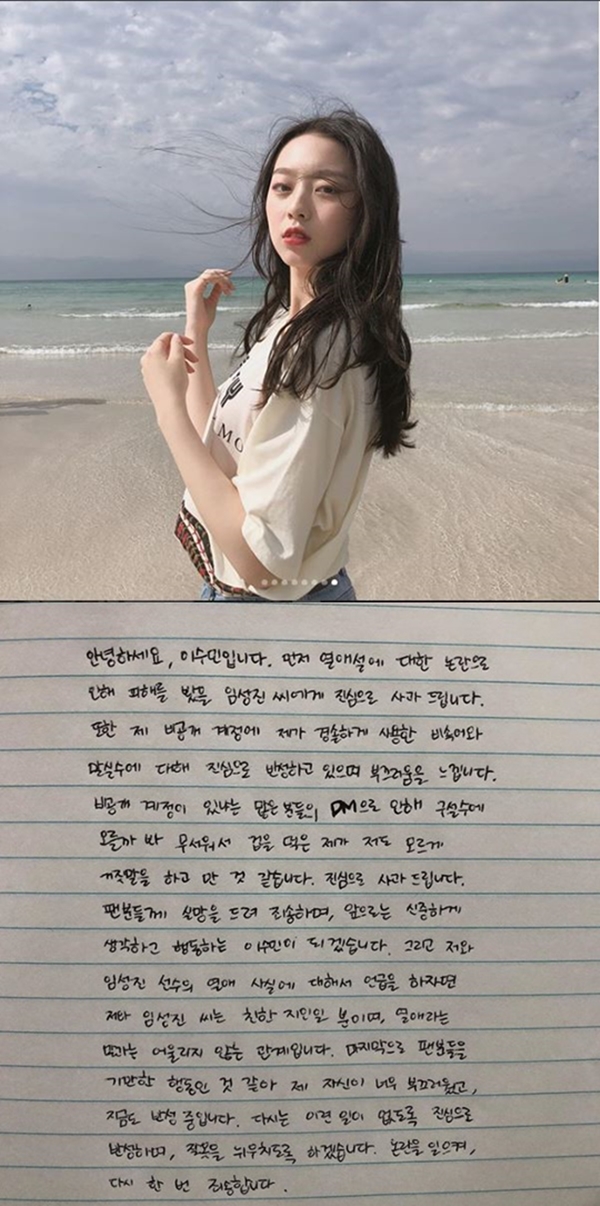 MO
안녕하세요, 이수민입니다. 먼저 열애설에 대한 논란으로
인해 피해를 봤을 임성진 씨에게 진심으로 사과 드립니다.
또한 제 비공개 계정에 제가 경솔하게 사용한 비속어와
말실수에 대해 진심으로 반성하고 있으며 부끄러움을 느낍니다.
비공개 계정이 있냐는 많은 분들의 DM으로 인해 구설수에
오를까 봐 무서워서 겁을 먹은 제가 저도 모르게
거짓말을 하고 만 것 같습니다. 진심으로 사과 드립니다.
팬분들께 실망을 드려 죄송하며, 앞으로는 신중하게
생각하고 행동하는 이수민이 되겠습니다. 그리고 저와
임성진 선수의 열애 사실에 대해서 언급을 하자면
저와 임성진 씨는 친한 지인일 분이며, 열애라는
말과는 어울리지 않는 관계입니다. 마지막으로 팬분들을
기만한 행동인 것 같아 제 자신이 너무 부끄러웠고,
지금도 반성 중입니다. 다시는 이런 일이 없도록 진심으로
반성하며, 잘못을 뉘우치도록 하겠습니다. 논란을 일으켜,
다시 한 번 죄송합니다.